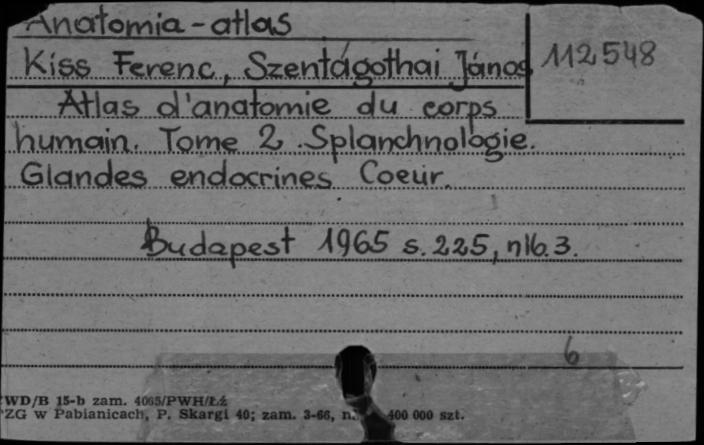 Anatomia-atlas
112548
Kiss Ferenc, Szentágothai János
Atlas d'anatomie du corps
humain. Tome 2. Splanchnologie.
Glandes endocrines Coeur.
Budapest 1965 s. 225, nlb. 3.
6
WD/B 15-b zam. 4065/PWH/Łź
PZG w Pabianicach, P. Skargi 40; zam. 3-66, n. 400 000 szt.